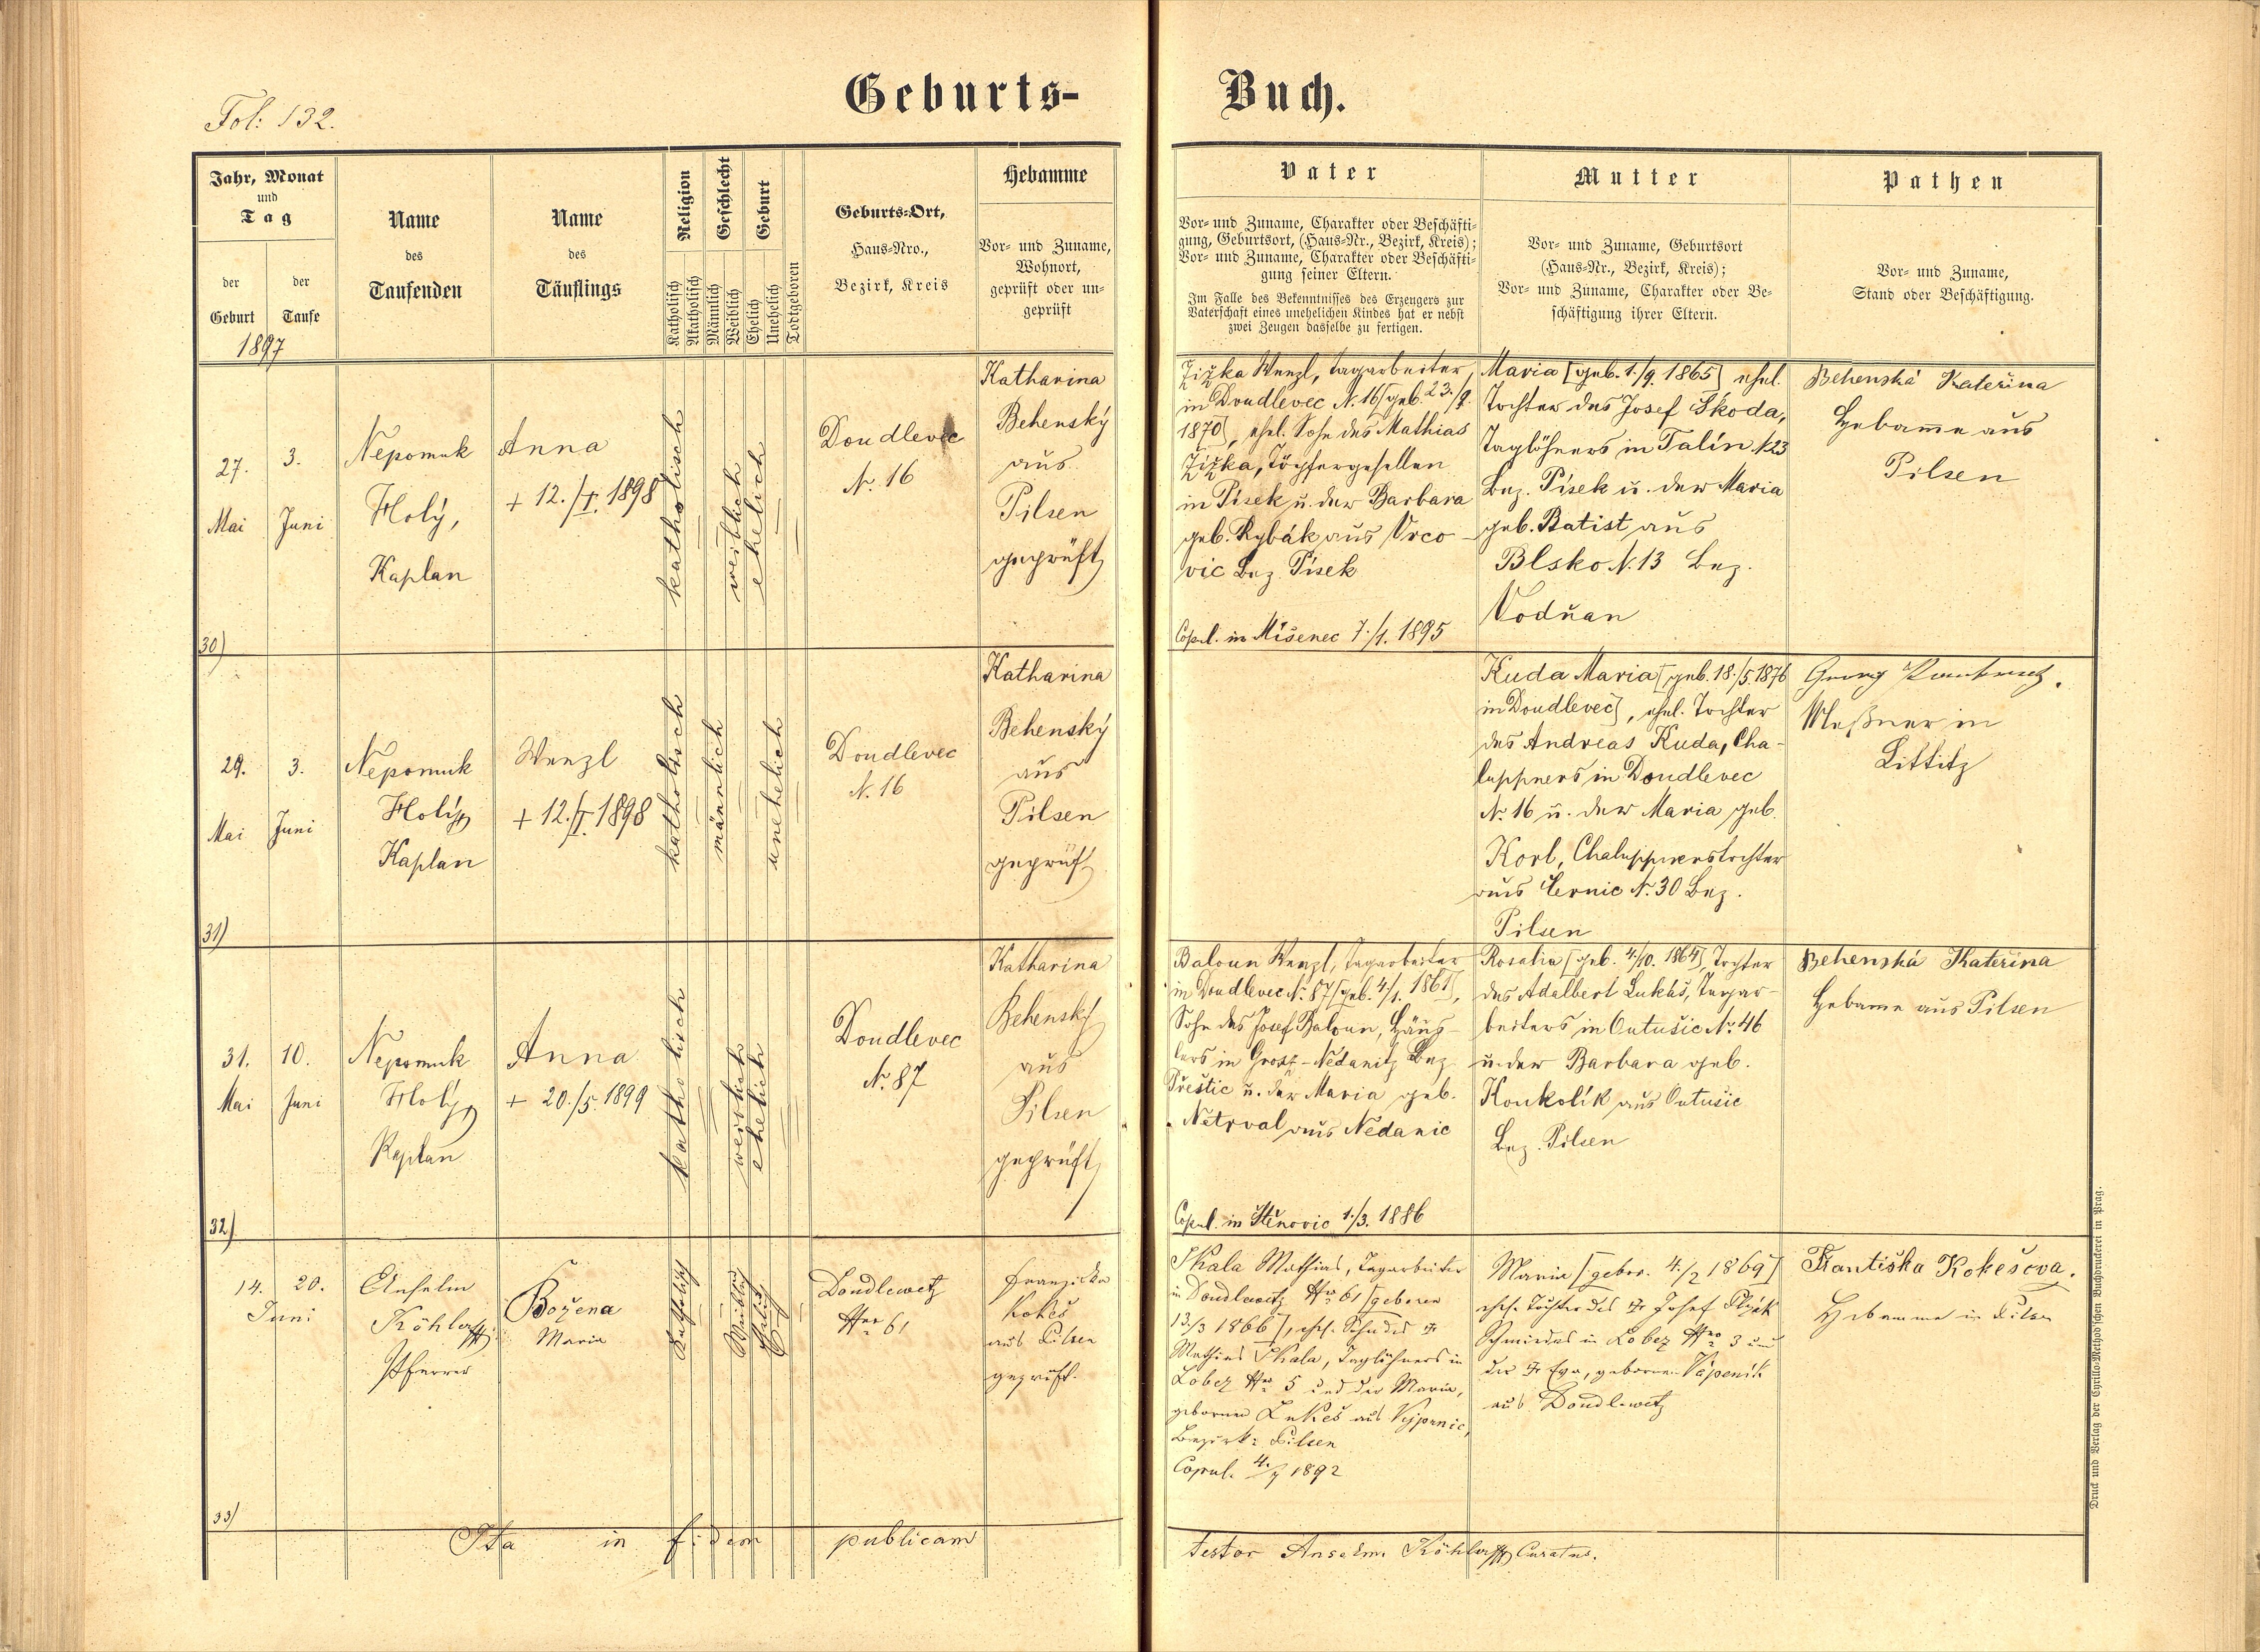 Fol: 132.
Geburts-
Buch.
Jahr, Monat
und
Tag
der
Geburt
der
Taufe
1897
Name
des
Taufenden
Name
des
Täuflings
Religion
Katholisch
Akatholisch
Geschlecht
Männlich
Weiblich
Geburt
Ehelich
Unehelich
Todtgeboren
Geburts-Ort,
Haus-Nro.,
Bezirk, Kreis
Hebamme
Vor- und Zuname,
Wohnort,
geprüft oder un-
geprüft
Vater
Vor- und Zuname, Charakter oder Beschäfti-
gung, Geburtsort, (Haus-Nr., Bezirk, Kreis);
Vor- und Zuname, Charakter oder Beschäfti-
gung seiner Eltern.
Im Falle des Bekenntnisses des Erzeugers zur
Vaterschaft eines unehelichen Kindes hat er nebst
zwei Zeugen dasselbe zu fertigen.
Mutter
Vor- und Zuname, Geburtsort
(Haus-Nr., Bezirk, Kreis);
Vor- und Zuname, Charakter oder Be-
schäftigung ihrer Eltern.
Pathen
Vor- und Zuname,
Stand oder Beschäftigung.
27.
Mai
3.
Juni
Nepomuk
Holý,
Kaplan
Anna
+ 12./I. 1898
katholisch
weiblich
ehelich
Doudlevec
N. 16
Katharina
Behenský
aus
Pilsen
geprüft
Žižka Wenzl, Tagarbeiter
in Doudlevec N. 16 [geb. 23./9.
1870], ehel. Sohn des Mathias
Žižka, Töpfergesellen
in Písek u. der Barbara
geb. Rybák aus Vrco-
vic Bez. Písek
Copul. in Mišenec 7./1. 1895
Maria [geb. 1./9. 1865] ehel.
Tochter des Josef Škoda,
Taglöhners in Talín N. 23
Bez. Písek u. der Maria
geb. Batist aus
Blsko N. 13 Bez.
Vodňan
Behenská Kateřina
Hebamme aus
Pilsen
30)
29.
Mai
3.
Juni
Nepomuk
Holý
Kaplan
Wenzl
+ 12./I. 1898
katholisch
männlich
unehelich
Doudlevec
N. 16
Katharina
Behenský
aus
Pilsen
geprüft
Kuda Maria [geb. 18./5. 1876
in Doudlevec], ehel. Tochter
des Andreas Kuda, Cha-
luppners in Doudlevec
N. 16 u. der Maria geb.
Korl, Chaluppnerstochter
aus Černic N. 30 Bez.
Pilsen
Georg
Meßner in
Littitz
31)
31.
Mai
10.
Juni
Nepomuk
Holý
Kaplan
Anna
+ 20./5. 1899
katholisch
weiblich
ehelich
Doudlevec
N. 87
Katharina
Behenský
aus
Pilsen
geprüft
Baloun Wenzl, Tagarbeiter
in Doudlevec N. 87 [geb. 4./1. 1861],
Sohn des Josef Baloun, Häus-
lers in Gross-Nědanitz Bez.
Přeštic u. der Maria geb.
Netrval aus Nědanic
Copul. in Štěnovic 1./3. 1886
Rosalia [geb. 4./10. 1864], Tochter
des Adalbert Lukáš, Tagar-
beiters in Outušic N. 46
u. der Barbara geb.
Konkolík aus Outušic
Bez. Pilsen
Behenská Kateřina
Hebamme aus Pilsen
32)
14.
20.
Juni
Anselm
Köhler
Pfarrer
Božena
Maria
Katholisch
Weiblich
Ehelich
Doudlewetz
Nro 61
Franziska
Kokeš
aus Pilsen
geprüft.
Skala Mathias, Tagarbeiter
in Doudlewetz Nro 61 [geboren
13/3 1866], ehel. Sohn des
Mathias Skala, Taglöhners in
Lobez Nro 5 und der Maria,
geborner Lukeš aus Vejprnic,
Bezirk: Pilsen
Copul. 4./7 1892
Maria [gebor. 4./2 1869]
ehel. Tochter des Josef
Schmiedes in Lobez Nro 3 und
der Eva, geborner Vápeník
aus Doudlewetz
Františka Kokešova.
Hebamme in Pilsen
33)
Ita in fidem publicam
testor Anselm Köhler Curatus.
Druck und Verlag der Cyrillo-Method'schen Buchdruckerei in Prag.